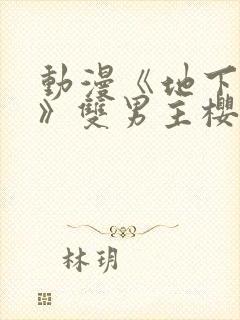 動漫《地下
》雙男主櫻
林玥